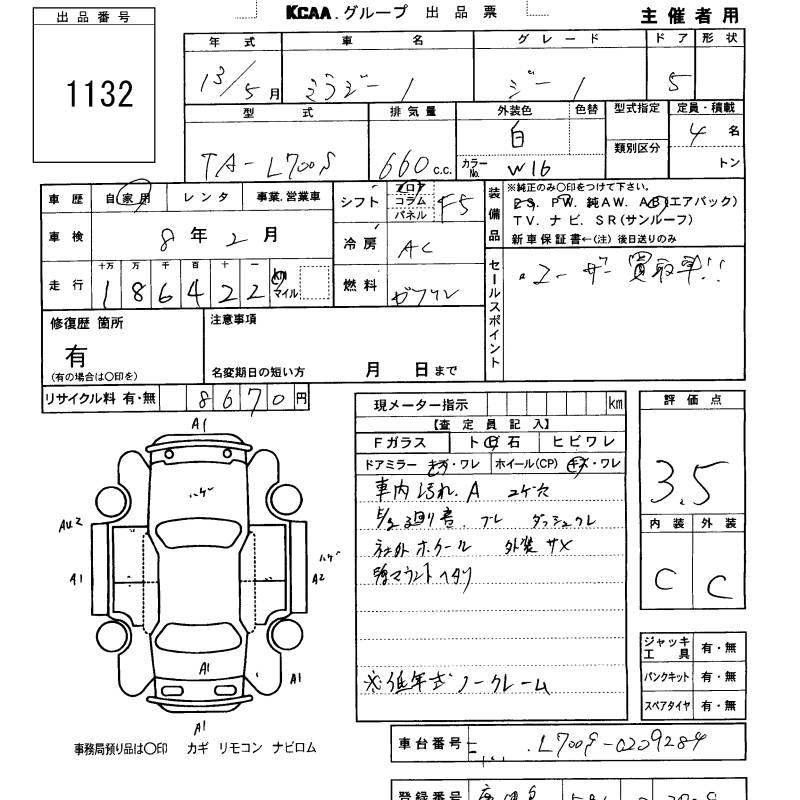 KCAA.グループ 出品票
主催者用
出品番号
1132
年式 車名 グレード ドア 形状
13/5月 ミラジーノ ジーノ 5
型式 排気量 外装色 色替 型式指定 定員・積載
類別区分
TA-L700S 660c.c. 白 4名
カラーNo. W16 トン
車歴 自家用 レンタ 事業.営業車
車検 8年2月
走行 十万 万 千 百 十 一
186422 km マイル
シフト フロア コラム パネル F5
冷房 AC
燃料 ガソリン
装備品
※純正のみ〇印をつけて下さい。
PS. PW. 純AW. AB(エアバック)
TV. ナビ. SR(サンルーフ)
新車保証書←(注) 後日送りのみ
セールスポイント
・ユーザー買取車!!
修復歴 箇所
有
(有の場合は〇印を)
注意事項
名変期日の短い方 月 日まで
リサイクル料 有・無 8670円
現メーター指示 km
【査定員記入】
Fガラス ト ビ 石 ヒビワレ
ドアミラー キズ・ワレ ホイール(CP) キズ・ワレ
車内汚れ.A コゲ穴
E/g廻り音. フレ ダッシュワレ
社外ホイール 外装サメ
マウントヘタリ
※低年式ノークレーム
評価点
3.5
内装 外装
C C
ジャッキ工具 有・無
パンクキット 有・無
スペアタイヤ 有・無
A1
ハゲ
AU2
A1
ハゲ
A2
A1
A1
A1
事務局預り品は〇印 カギ リモコン ナビロム
車台番号 L700S-0209284
登録番号